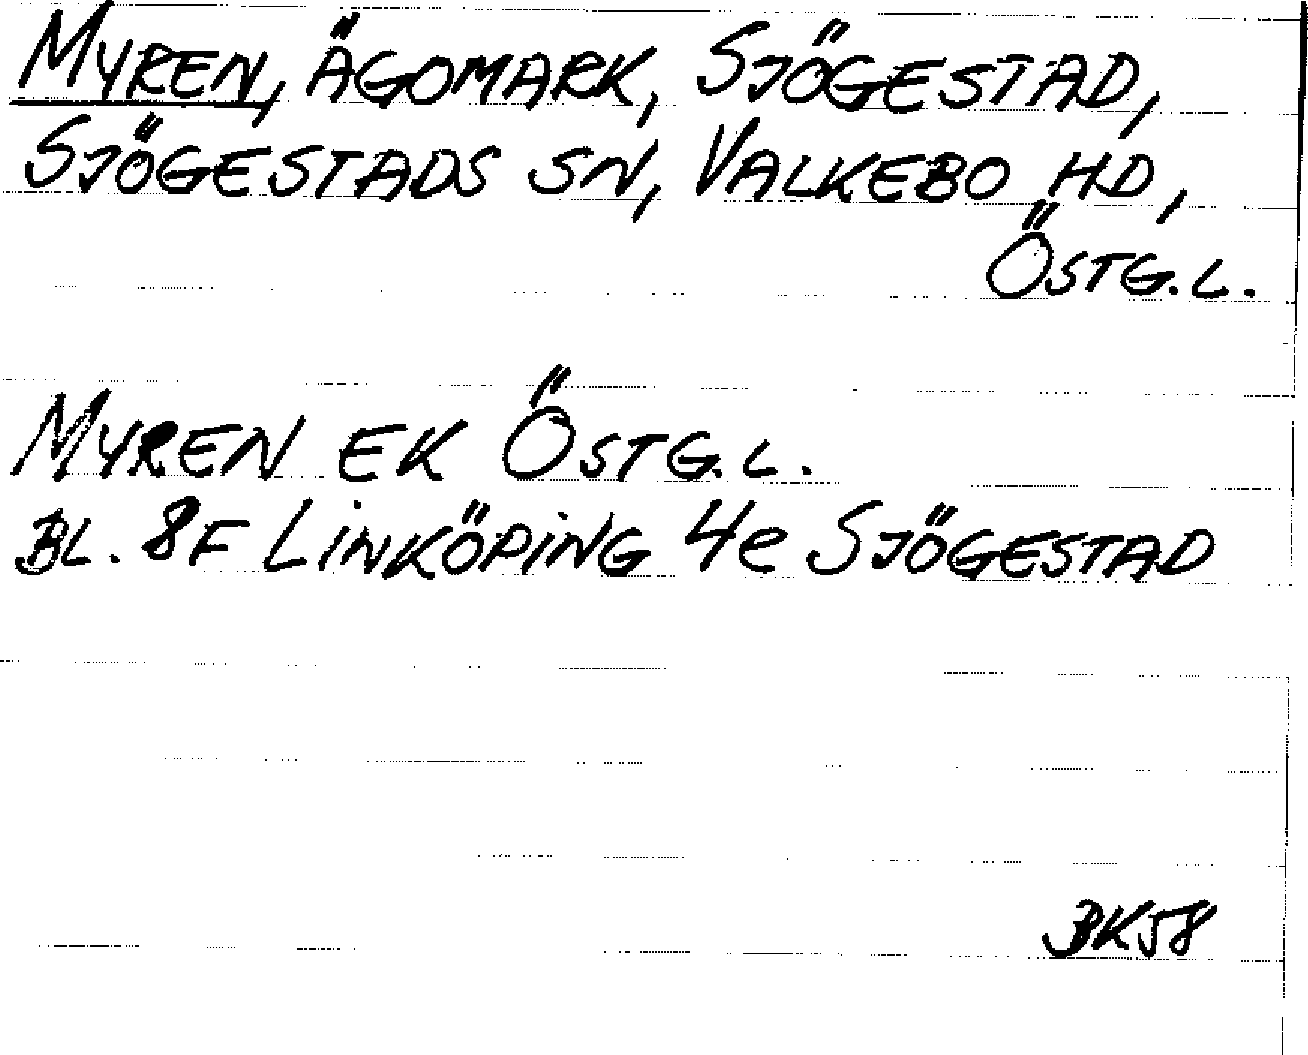 MYREN, ÄGOMARK, SJÖGESTAD,
SJÖGESTADS SN, VALKEBO HD,
ÖSTG.L.
MYREN EK ÖSTG.L.
BL. 8F LINKÖPING 4e SJÖGESTAD
BK58